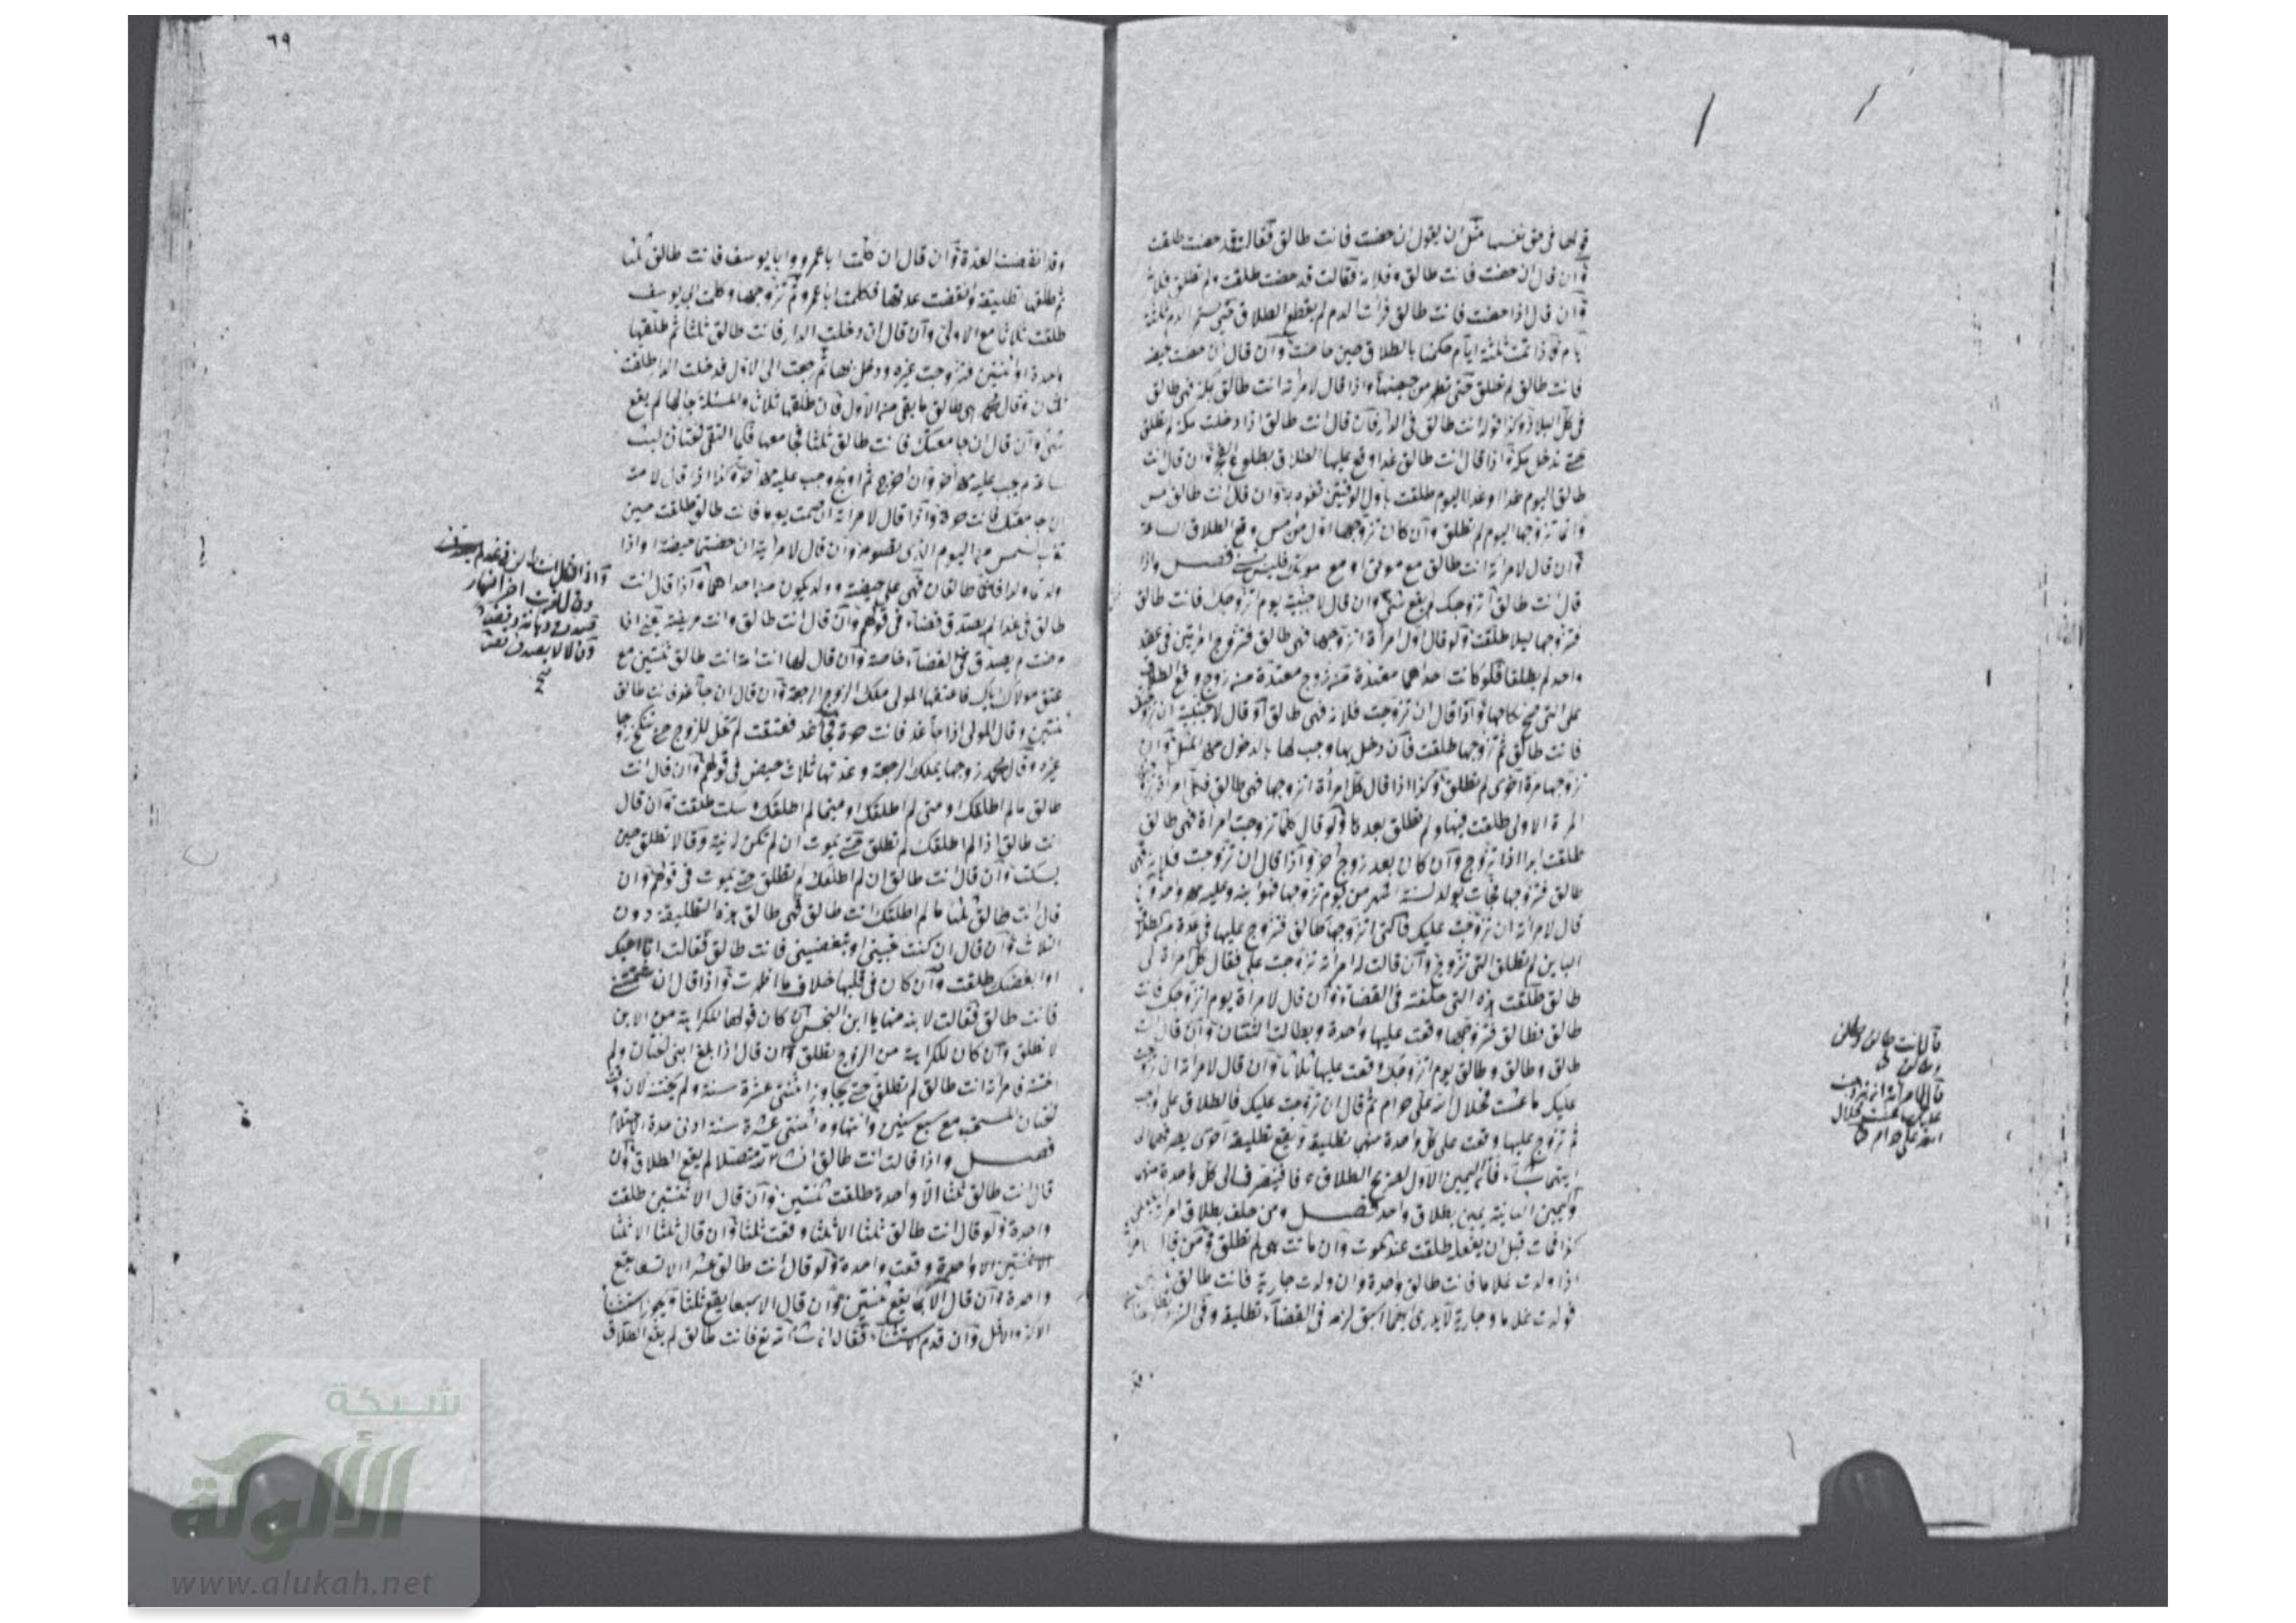 قولها في حق نفسها مثل ان يقول ان حضت فانت طالق فقالت قد حضت طلقت
وان قال ان حضت فانت طالق وفلانة فقالت قد حضت طلقت ولم تطلق فلانة
وان قال اذا حضت فانت طالق فرأت الدم لم يقع الطلاق حتى يستمر الدم ثلثة
ايام فاذا تمت ثلثة ايام حكمنا بالطلاق حين حاضت وان قال ان حضت حيضة
فانت طالق لم تطلق حتى تطهر من حيضها واذا قال لامرأته انت طالق بمكة فهي طالق
في كل البلاد وكذا قوله انت طالق في الدار فان قال انت طالق اذا دخلت مكة لم تطلق
حتى تدخل مكة اذا قال انت طالق غدا وقع عليها الطلاق بطلوع الفجر وان قال انت
طالق اليوم غدا او غدا اليوم طلقت باول الوقتين تفوه به وان قال انت طالق امس
وانما تزوجها اليوم لم تطلق وان كان تزوجها اول من امس وقع الطلاق الساعة
وان قال لامرأته انت طالق مع موتي او مع موتك فليس بشئ فصل واذا
قال انت طالق ان تزوجتك لم يقع شئ وان قال لاجنبية يوم اتزوجك فانت طالق
فتزوجها ليلا طلقت ولو قال اول امرأة اتزوجها فهي طالق فتزوج امرأتين في عقد
واحد لم يطلقا فلو كانت احداهما معتدة من زوج وقع الطلاق
على التي صح نكاحها واذا قال ان تزوجت فلانة فهي طالق او قال لاجنبية ان تزوجتك
فانت طالق ثم تزوجها طلقت فان دخل بها وجب لها بالدخول مهر المثل وان
تزوجها مرة اخرى لم تطلق وكذا اذا قال كل امرأة اتزوجها فهي طالق فكل امرأة تزوجها
المرة الاولى طلقت فيها ولم تطلق بعدها ولو قال كلما تزوجت امرأة فهي طالق
طلقت ابدا اذا تزوج وان كان بعد زوج اخر واذا قال ان تزوجت فلانة فهي
طالق فتزوجها فجاءت بولد لستة اشهر من يوم تزوجها فهو ابنه وعليه مهر واحد وان
قال لامرأته ان تزوجت عليك فالتي اتزوجها طالق فتزوج عليها في عدة من الطلاق
البائن لم تطلق التي تزوج وان قالت له امرأته تزوجت علي فقال كل امرأة لي
طالق طلقت هذه التي حلفته في القضاء وان قال لامرأة يوم اتزوجك فانت
طالق فطالق فتزوجها وقعت عليها واحدة وبطلت الثنتان وان قال انت
طالق وطالق وطالق يوم اتزوجك وقعت عليها ثلاثا وان قال لامرأته ان تزوجت
عليك ما عشت فحلال الله علي حرام ثم قال ان تزوجت عليك فالطلاق علي واجب
ثم تزوج عليها وقعت على كل واحدة منهما تطليقة ويقع تطليقة اخرى يصرفها الى
ايتهما شاء فاليمين الاول لصريح الطلاق فانصرف الى كل واحدة منهن
واليمين الثانية يمين بطلاق واحد فصل ومن حلف بطلاق امرأته
كذا فمات قبل ان يفعله طلقت عند الموت وان ماتت هي لم تطلق ومن قال
اذا ولدت غلاما فانت طالق واحدة وان ولدت جارية فانت طالق ثنتين
فولدت غلاما وجارية لا يدرى ايهما اسبق لزمه في القضاء تطليقة وفي التنزه تطليقتان
قال انت طالق وطالق
وطالق
قال لامرأته ان تزوجت
عليك ما عشت فحلال
الله علي حرام
وقد
٦٩
وقد انقضت العدة وان قال ان كلمت ابا عمرو وابا يوسف فانت طالق ثلثا
ثم طلقها تطليقة وانقضت عدتها فكلمت ابا عمرو ثم تزوجها وكلمت ابا يوسف
طلقت ثلاثا مع الاولى وان قال ان دخلت الدار فانت طالق ثلثا ثم طلقها
واحدة او ثنتين فتزوجت غيره ودخل بها ثم رجعت الى الاول فدخلت الدار طلقت
ثلثا وقال محمد هي طالق ما بقي من الاول فان طلقها ثلاث والمسئلة بحالها لم يقع
شئ وان قال ان جامعتك فانت طالق ثلثا فجامعها فلما التقى الختانان لبث
ساعة لم يجب عليه مهر اخر وان اخرج ثم اولج وجب عليه مهر اخر وكذا اذا قال لامته
ان جامعتك فانت حرة واذا قال لامرأته ان صمت يوما فانت طالق طلقت حين
تغيب الشمس من اليوم الذي تصوم وان قال لامرأتيه ان حضتما حيضة او اذا
ولدتما ولدا فانتما طالقان فهي على حيضة وولد يكون من احداهما واذا قال انت
طالق في غد لم يصدق قضاء في قولهم وان قال انت طالق وانت مريضة يعني اذا
مرضت لم يصدق في القضاء خاصة وان قال لها انت امة انت طالق ثنتين مع
عتق مولاك اياك فاعتقها المولى ملك الزوج الرجعة وان قال ان جاء غد فانت طالق
ثنتين وقال المولى اذا جاء غد فانت حرة فجاء غد فعتقت لم تحل للزوج حتى تنكح زوجا
غيره وقال محمد زوجها يملك الرجعة وعدتها ثلاث حيض في قولهم وان قال انت
طالق ما لم اطلقك او متى لم اطلقك او متى ما لم اطلقك وسكت طلقت وان قال
انت طالق اذا لم اطلقك لم تطلق حتى يموت ان لم تكن له نية وقالا تطلق حين
يسكت وان قال انت طالق ان لم اطلقك لم تطلق حتى يموت في قولهم وان
قال انت طالق ثلثا ما لم اطلقك انت طالق فهي طالق هذه التطليقة دون
الثلاث وان قال ان كنت تحبيني او تبغضيني فانت طالق فقالت انا احبك
او ابغضك طلقت وان كان في قلبها خلاف ما اظهرت واذا قال ان شتمتني
فانت طالق فقالت لابنه منها يا ابن النجس ان كان قولها لكراهة من الابن
لا تطلق وان كان لكراهة من الزوج تطلق وان قال اذا بلغ ابني الختان ولم
اختنه فامرأته انت طالق لم تطلق حتى يجاوز اثنتي عشرة سنة ولم يختنه لان وقت
الختان المستحب مع سبع سنين وانتهاؤه اثنتي عشرة سنة ادنى مدة الاحتلام
فصل واذا قالت انت طالق ان شاء الله متصلا لم يقع الطلاق وان
قال انت طالق ثلثا الا واحدة طلقت ثنتين وان قال الا ثنتين طلقت
واحدة ولو قال انت طالق ثلثا الا ثلثا وقعت ثلثا وان قال ثلثا الا ثلثا
الا ثنتين الا واحدة وقعت واحدة ولو قال انت طالق عشرا الا تسعا يقع
واحدة وان قال الا ثمانيا يقع ثنتين وان قال الا سبعا يقع ثلثا ويجوز استثناء
الاكثر والاقل وان قدم الاستثناء فقال ان شاء الله تع فانت طالق لم يقع الطلاق
شبكة
الألوكة
www.alukah.net